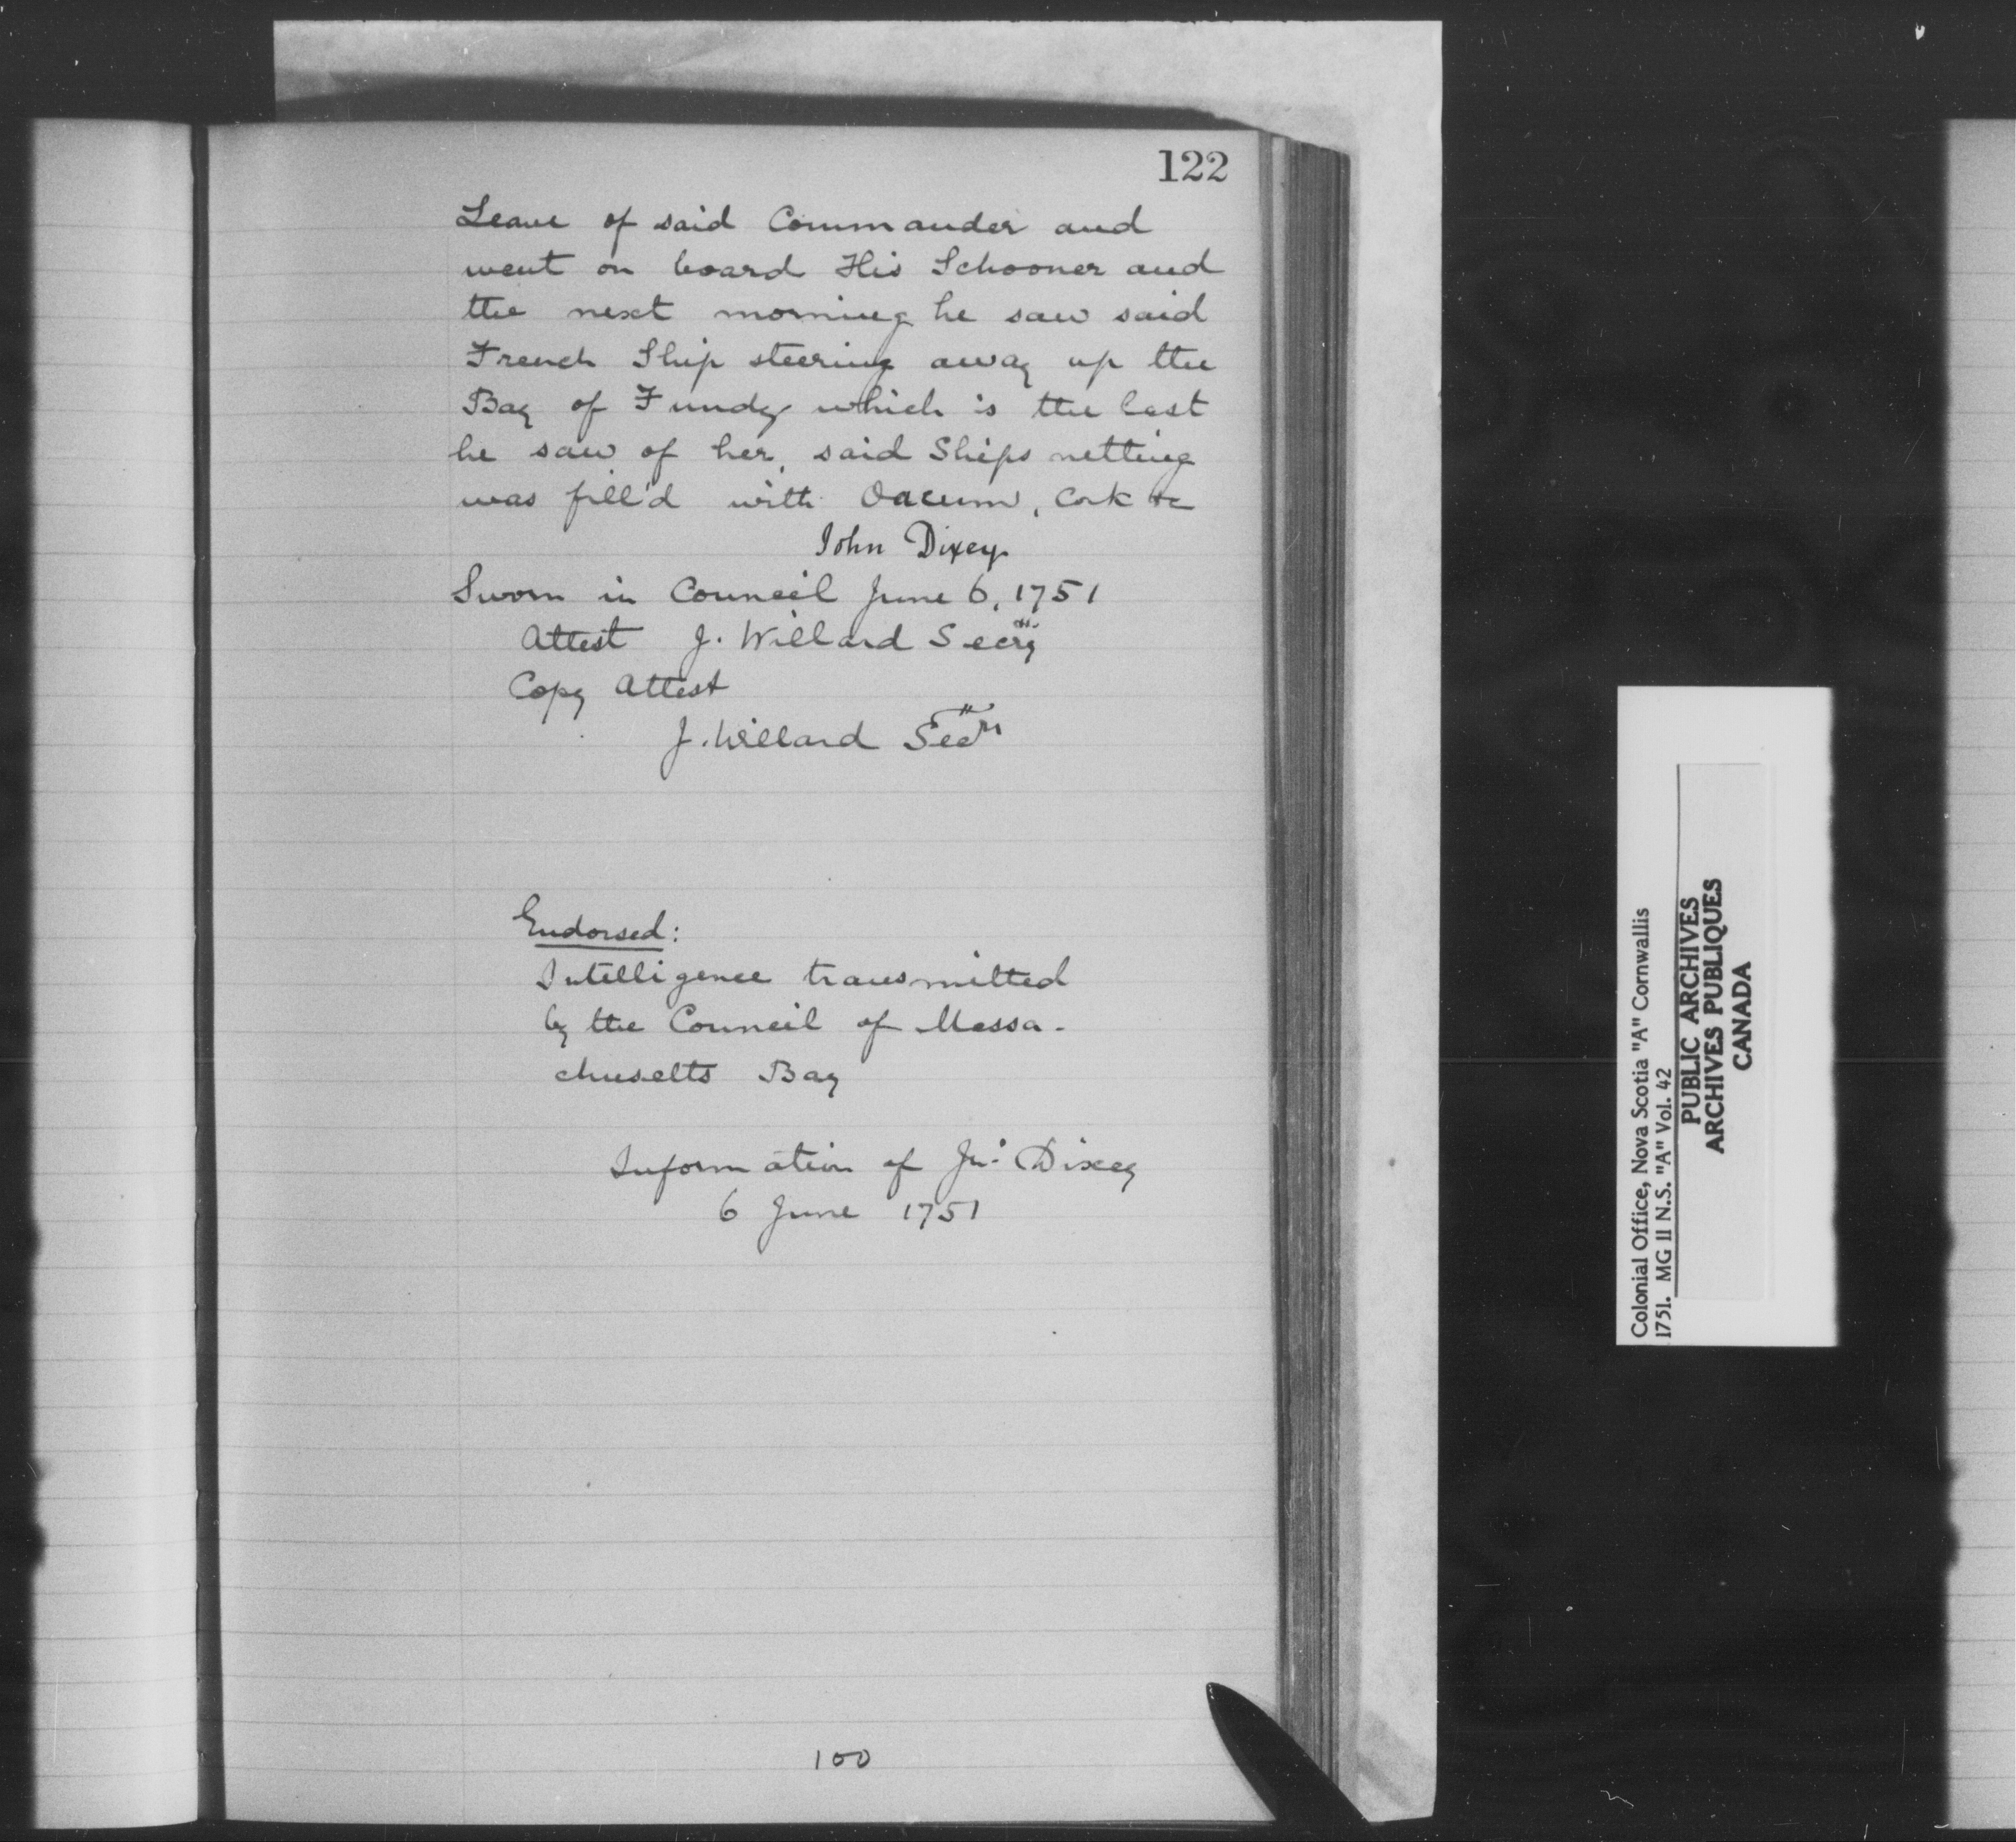 122
Leave of said Commander and
went on board His Schooner and
the next morning he saw said
French Ship steering away up the
Bay of Fundy which is the last
he saw of her, said Ships netting
was fill'd with Oacum, Cork &c
John Dixey
Sworn in Council June 6, 1751
Attest J. Willard Secry
Copy Attest
J. Willard Secry
Endorsed:
Intelligence transmitted
by the Council of Massa-
chusetts Bay
Information of Jno. Dixey
6 June 1751
100
Colonial Office, Nova Scotia "A" Cornwallis
1751. MG 11 N.S. "A" Vol. 42
PUBLIC ARCHIVES
ARCHIVES PUBLIQUES
CANADA